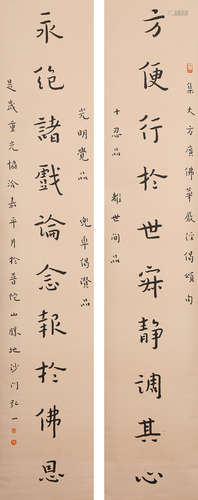 集大方廣佛華嚴經偈頌句
方便行於世寂靜調其心
十忍品 離世間品
光明覺品 兜率偈讚品
永絕諸戲論念報於佛恩
是歲重光協洽嘉平月於普陀山勝地沙門弘一